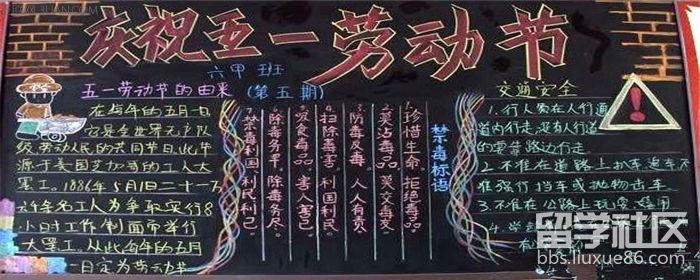 庆祝五一劳动节
六甲班
五一劳动节的由来 (第五期)
在每年的五月一日
它是全世界无产阶
级劳动人民的共同节日,此节
源于美国芝加哥的工人大
罢工。1886年5月1日二十一万
六千余名工人为争取实行8
小时工作制而举行
大罢工。从此每年的五月
一日定为劳动节
禁毒标语
1.珍惜生命 拒绝毒品
2.莫沾毒品 莫交毒友
3.防毒反毒,人人有责
4.扫除毒害,利国利民
5.吸食毒品,害人害己
6.除毒务早,除毒务尽
7.禁毒利国,利民利己
交通安全
1.行人须在人行道
道内行走,没有人行道
的要靠路边行走
2.不准在道路上扒车追车不
准强行拦车或抛物击车
3.不准在公路上玩耍嬉闹
4.学
留学社区
bbs.liuxue86.com